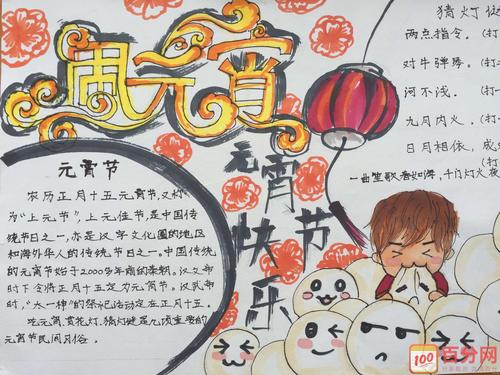 闹元宵
元宵节
快
乐
元宵节
农历正月十五元宵节,又称
为"上元节",上元佳节,是中国传
统节日之一,亦是汉字文化圈的地区
和海外华人的传统节日之一。中国传统
的元宵节始于2000多年前的秦朝。汉文帝
时下令将正月十五定为元宵节。汉武帝
时,"太一神"的祭祀活动定在正月十五。
吃元宵、赏花灯、猜灯谜是几项重要的
元宵节民间习俗。
猜灯
两点指令。(打
对牛弹琴。(打一
河不浅。(打一
九月内火。(打
日月相依,成
一曲笙歌春如海,千门灯火夜
100 百分网